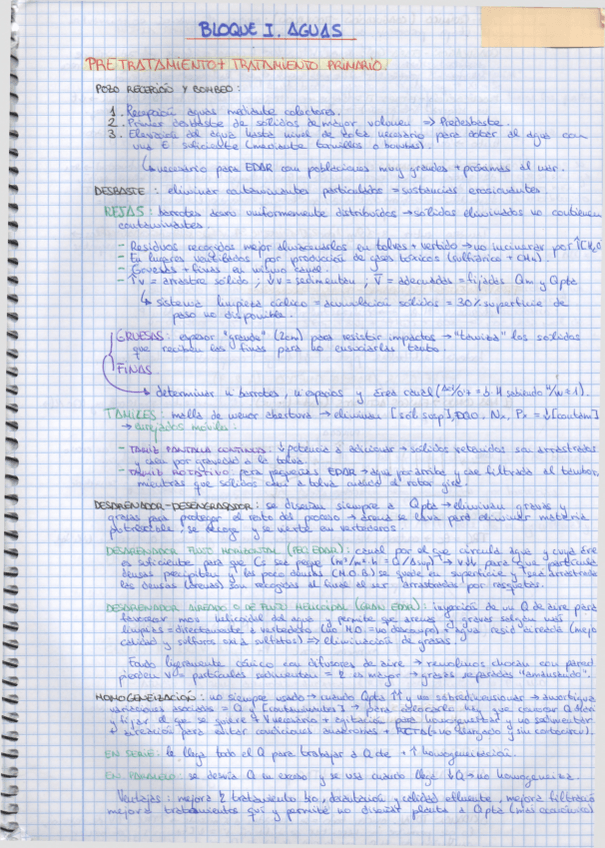 BLOQUE I. AGUAS
PRETRATAMIENTO + TRATAMIENTO PRIMARIO.
POZO RECEPCIÓN Y BOMBEO:
1. Recepción aguas mediante colectores.
2. Primer desbaste de sólidos de mayor volumen => Predesbaste.
3. Elevación del agua hasta nivel de cota necesario para dotar al agua con
una E suficiente (mediante tornillos o bombas).
↳ necesario para EDAR con poblaciones muy grandes + próximas al mar.
DESBASTE: eliminar contaminantes particulados = sustancias
REJAS: barrotes acero uniformemente distribuidos → sólidos eliminados no contienen
contaminantes.
- Residuos recogidos mejor almacenarlos en tolvas + vertido → no incinerar por ↑[H2O
- En lugares ventilados por producción de gases tóxicos (sulfhídrico + CH4).
- Gruesas + finas en mismo canal.
- ↑v = arrastre sólido, ↓v = sedimentan, v = adecuadas = fijados Qm y Qpta
↳ sistema limpieza cíclico = acumulación sólidos = 30% superficie de
paso no disponible.
GRUESAS: espesor "grande" (2cm) para resistir impactos → "tamiza" los sólidos
que reciben las finas para no ensuciarlas tanto.
FINAS.
→ determinar nº barrotes, nº espacios y área canal
TAMICES: malla de menor abertura → eliminan [sól susp], DQO, Nx, Px = ↓[contam]
→
- TAMIZ PANTALLA CONTINUO: ↓potencia a adicionar → sólidos retenidos son arrastrados
y caen por gravedad a la tolva.
- TAMIZ ROTATIVO para pequeñas EDAR → agua por arriba y cae filtrada al tambor,
mientras que sólidos caen a tolva cuando el rotor gira.
DESARENADOR-DESENGRASADOR: se diseñan siempre a Qpta → eliminan gravas y
grasas para proteger el resto del proceso → arena se lava para eliminar materia
putrescible, se recoge y se vierte en vertederos.
DESARENADOR FLUJO HORIZONTAL (PEQ EDAR): canal por el que circula agua y cuya área
es suficiente para que Cs sea peque (m³/m²·h = Q/Asup) → para que partícula
densas precipiten y las poco densas (M.O.) se quede en superficie y sea arrastrada
las densas (arenas) son recogidas al final al ser arrastradas por rasquetas.
DESARENADOR AIREADO O DE FLUJO HELICOIDAL (GRAN EDAR): inyección de un Q de aire para
favorecer mov helicoidal del agua y permite que arenas y gravas salgan más
limpias = directamente a vertedero (no M.O. = no descomp) + agua resid aireada (mejo
calidad y sulfuros ox a sulfatos) => eliminación de grasas.
Fondo ligeramente cónico con difusores de aire → remolinos chocan con pared
pierden v = partículas sedimentan = es mejor → grasas separadas "arrastrando".
HOMOGENEIZACIÓN: no siempre usado → cuando Qpta ↑↑ y no sobredimensionar → amortigua
variaciones asociadas = Q y [contaminantes] → para hay que conocer Q
y fijar el que se quiere + V necesario + agitación para homogeneizar y no sedimentar
+ aireación para evitar condiciones anaerobias + RCTA (no alargado y sin cortocirc).
EN SERIE: le llega todo el Q para trabajar a Q cte + ↑ homogeneización.
EN PARALELO: se desvía Q en exceso y se usa cuando llega ↓Q → no homogeneiza.
Ventajas: mejora tratamiento 1rio, y calidad efluente, mejora filtració
mejora tratamientos quí y permite no diseñar planta a Qpta (más económico)